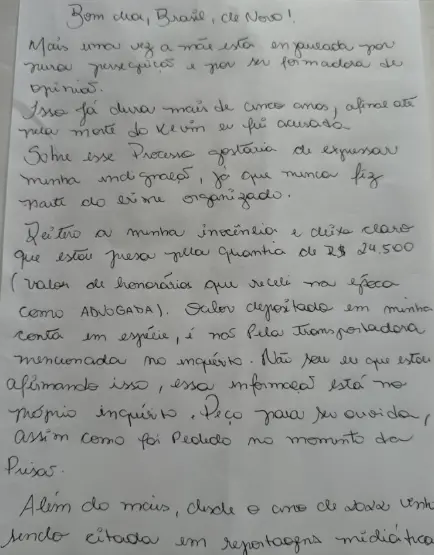 Bom dia, Brasil, de Novo!
Mais uma vez a mãe está enjaulada por
pura perseguição e por ser formadora de
opinião.
Isso já dura mais de cinco anos, afinal até
pela morte do Kevin eu fui acusada.
Sobre esse Processo gostaria de expressar
minha indignação, já que nunca fiz
parte do crime organizado.
Reitero a minha inocência e deixo claro
que estou presa pela quantia de R$ 24.500
(valor de honorários que recebi na época
como ADVOGADA). Valor depositado em minha
conta em espécie, e não Pela transportadora
mencionada no inquérito. Não sou eu que estou
afirmando isso, essa informação está no
próprio inquérito. Peço para ser ouvida,
assim como foi Pedido no momento da
Prisão.
Além do mais, desde o ano de 2022 vinha
sendo citada em reportagens midiática